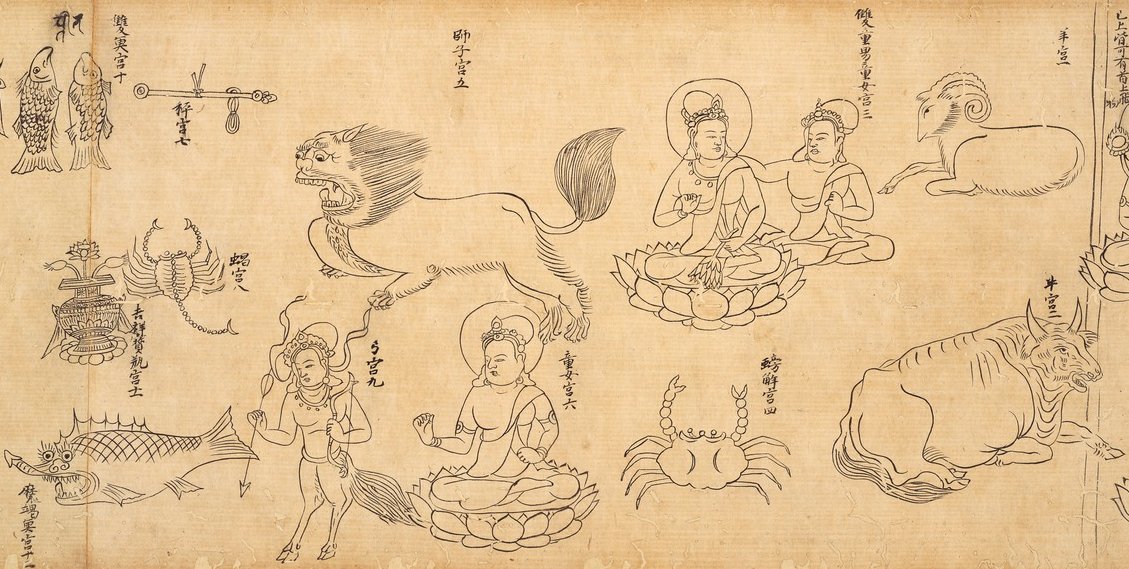 已上皆可有首上
羊宮一
牛宮二
雙童男童女宮三
螃蟹宮四
師子宮五
童女宮六
秤宮七
蝎宮八
弓宮九
雙魚宮十
吉祥賢瓶宮士
摩竭魚宮十